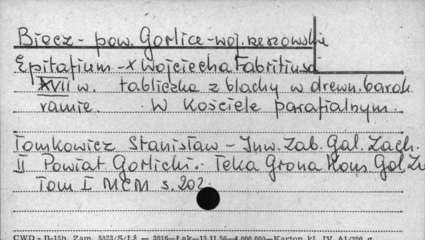 Biecz - pow. Gorlice - woj. rzeszowskie
Epitafium - x Wojciecha Fabritiusa
XVII w. tabliczka z blachy w drewn. barok.
ramie. W Kościele parafialnym.
Tomkowicz Stanisław - Inw. Zab. Gal. Zach.
II Powiat Gorlicki. Teka Grona Kons. Gal. Za
Tom I MCM s. 202.
CWD - B-15b. Zam. 5823/S/Łż — 5016 — Łąk — 15.11.56 — 4.000.000 — Karton kl. IV A1/200 g